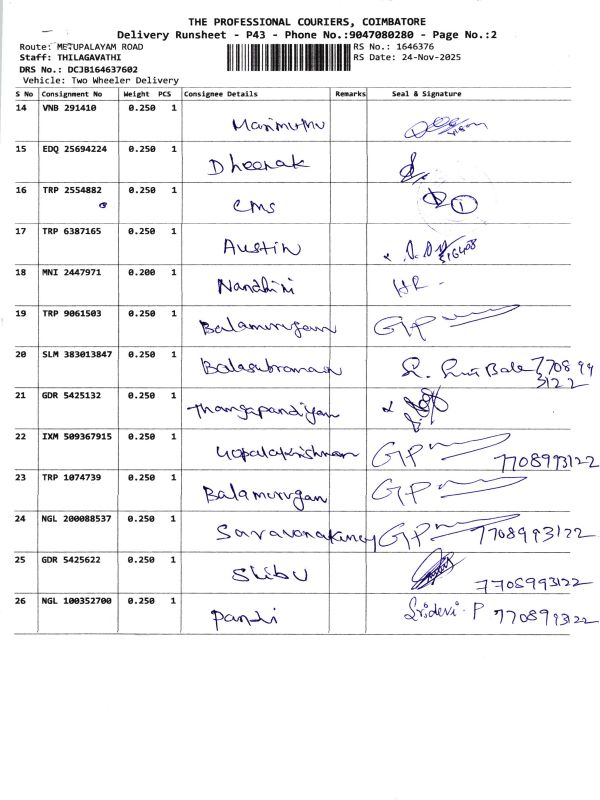 THE PROFESSIONAL COURIERS, COIMBATORE
Delivery Runsheet - P43 - Phone No.:9047080280 - Page No.:2
Route: METUPALAYAM ROAD RS No.: 1646376
Staff: THILAGAVATHI RS Date: 24-Nov-2025
DRS No.: DCJB164637602
Vehicle: Two Wheeler Delivery
S No Consignment No Weight PCS Consignee Details Remarks Seal & Signature
14 VNB 291410 0.250 1
Marimuthu
15 EDQ 25694224 0.250 1
Dheenak
16 TRP 2554882 0.250 1
CMS 1
17 TRP 6387165 0.250 1
Austin
18 MNI 2447971 0.200 1
Nandhini HR
19 TRP 9061503 0.250 1
Balamurugan GP
20 SLM 383013847 0.250 1
Balasubramani 770899
3122
21 GDR 5425132 0.250 1
Thangapandiyan
22 IXM 509367915 0.250 1
Gopalakrishnan GP 7708993122
23 TRP 1074739 0.250 1
Balamurugan GP
24 NGL 200088537 0.250 1
GP 7708993122
25 GDR 5425622 0.250 1
Shibu 7708993122
26 NGL 100352700 0.250 1
Pandi Sridevi.P 7708993122